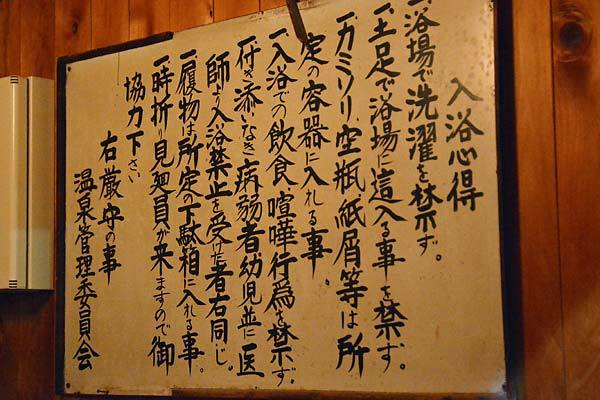 入浴心得
一、浴場で洗濯を禁ず。
一、土足で浴場に這入る事を禁ず。
一、カミソリ、空瓶、紙屑等は所
定の容器に入れる事。
一、入浴での飲食、喧嘩行為を禁ず。
一、付き添いなき病弱者幼児並に医
師より入浴禁止を受けた者右同じ。
一、履物は所定の下駄箱に入れる事。
一、時折り見廻員が来ますので御
協力下さい
右厳守の事
温泉管理委員会